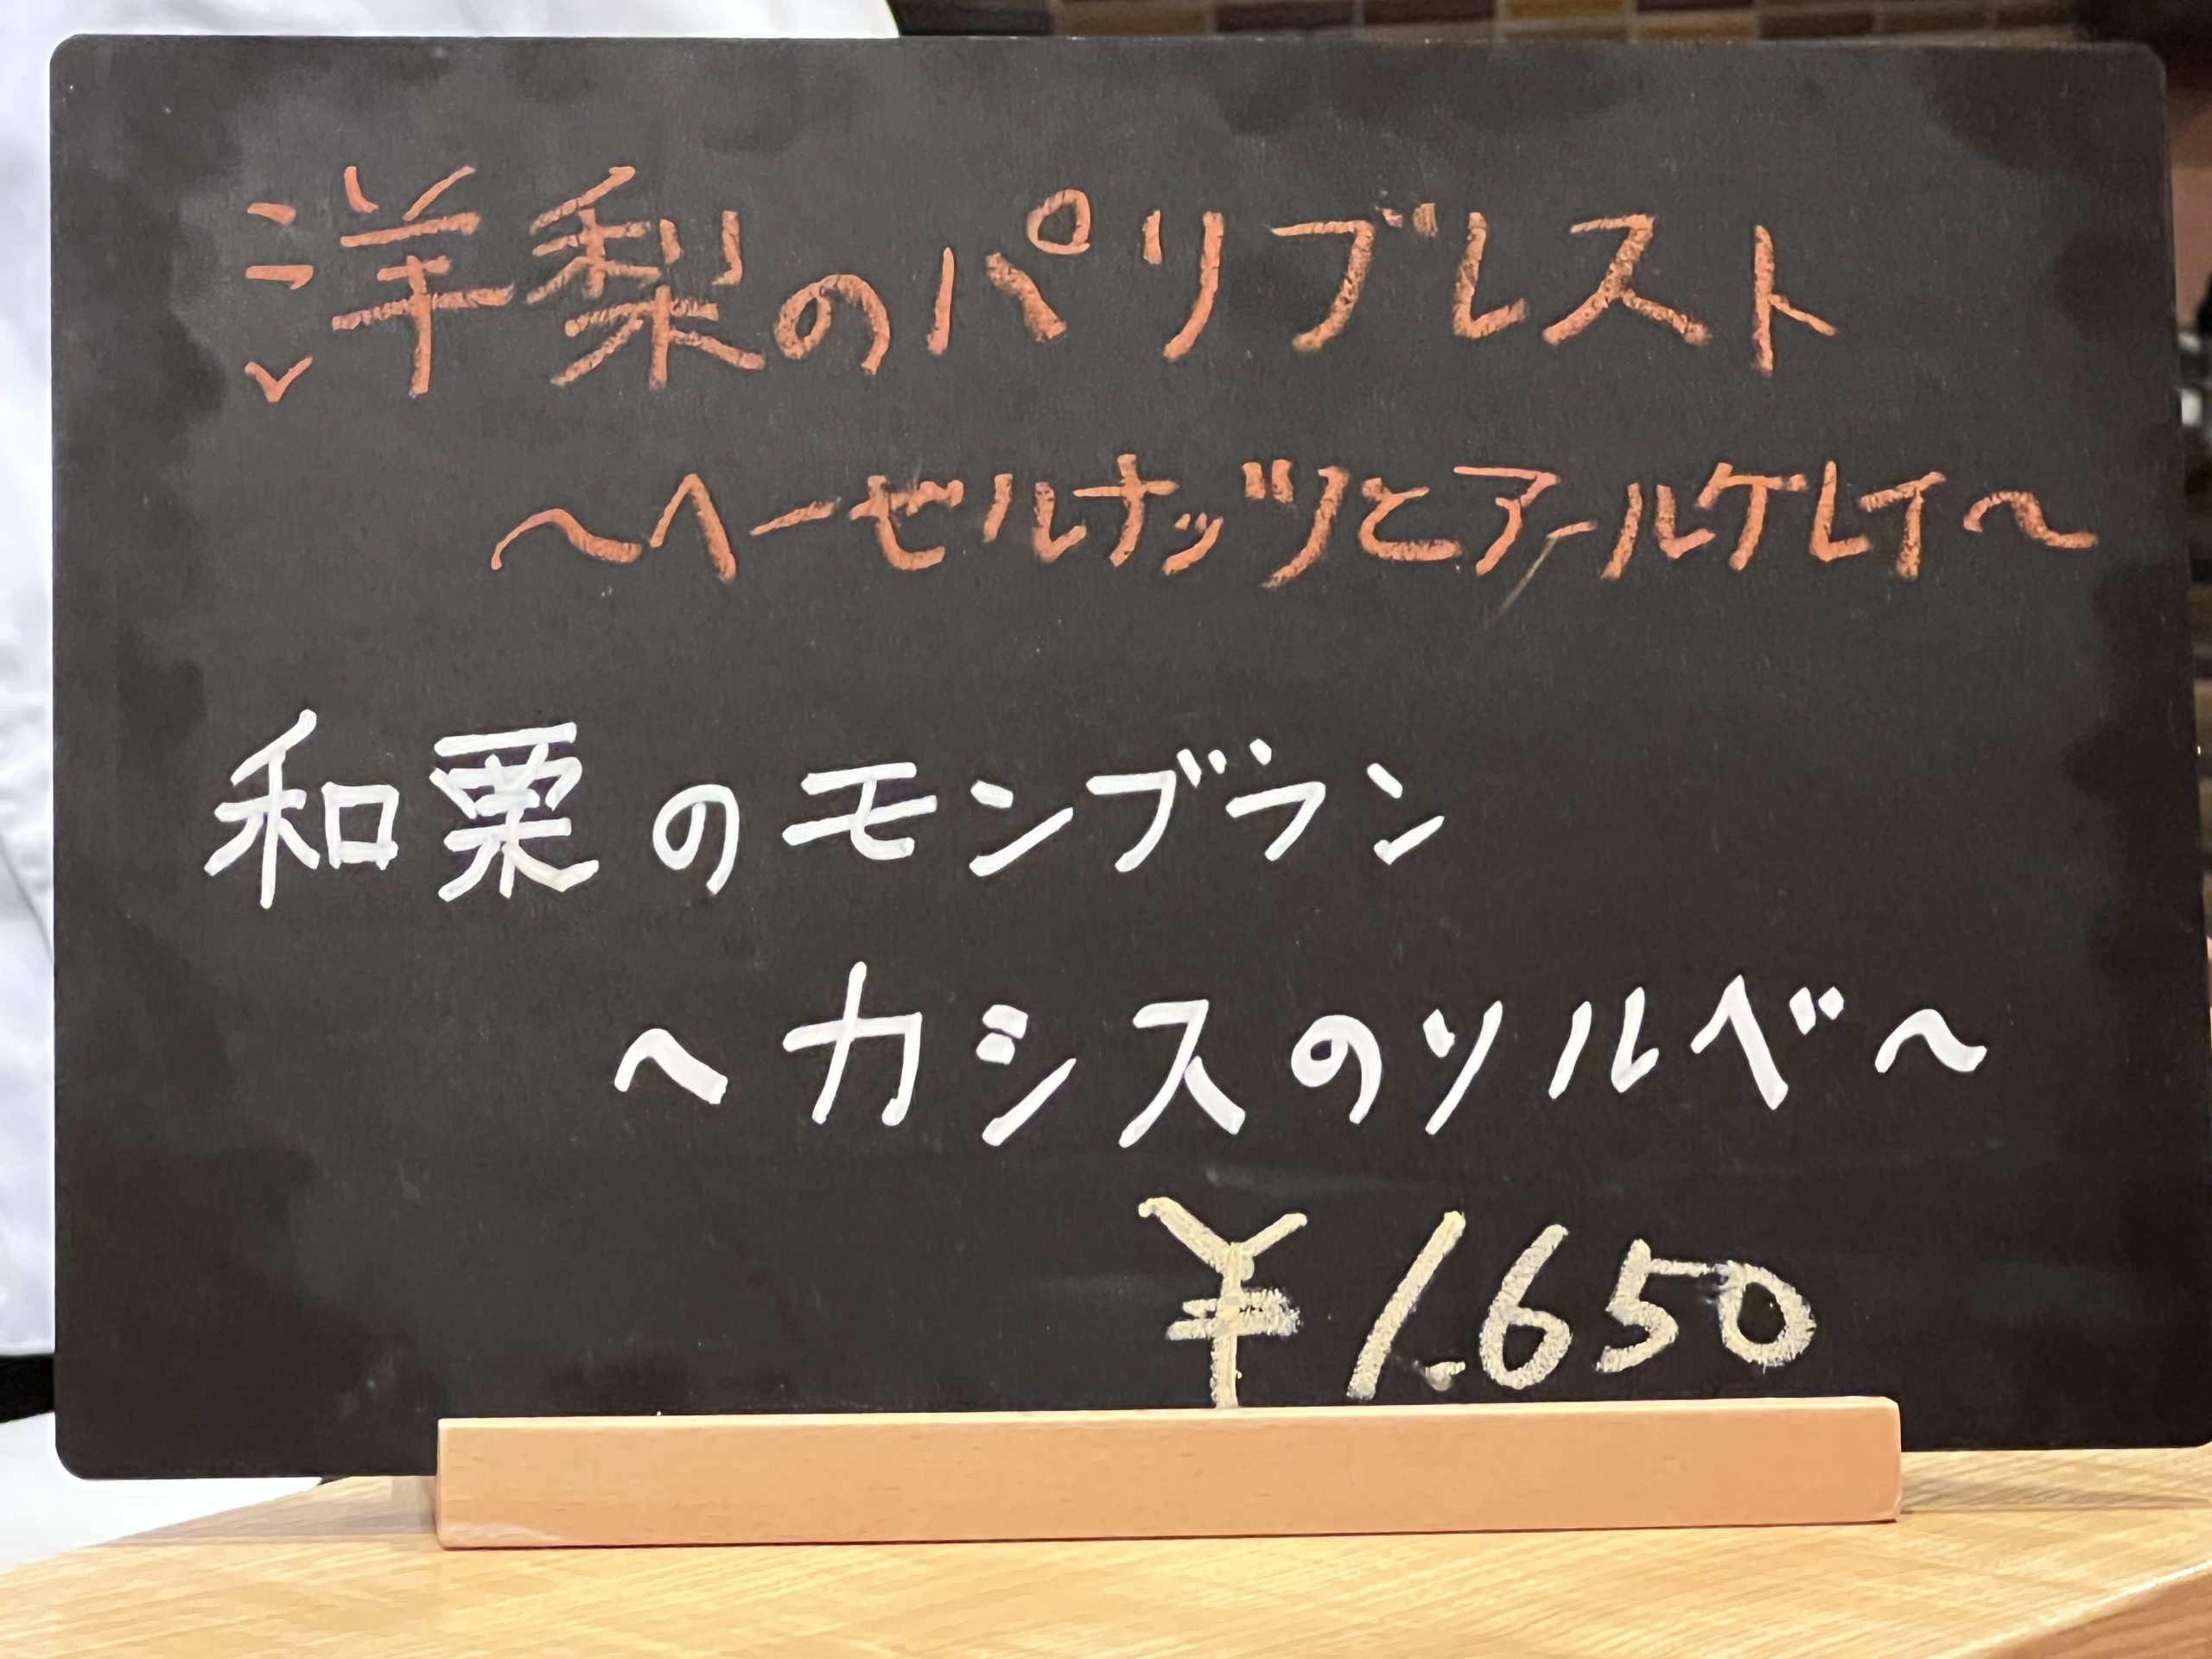 洋梨のパリブレスト
〜ヘーゼルナッツとアールグレイ〜
和栗のモンブラン
〜カシスのソルベ〜
¥1.650